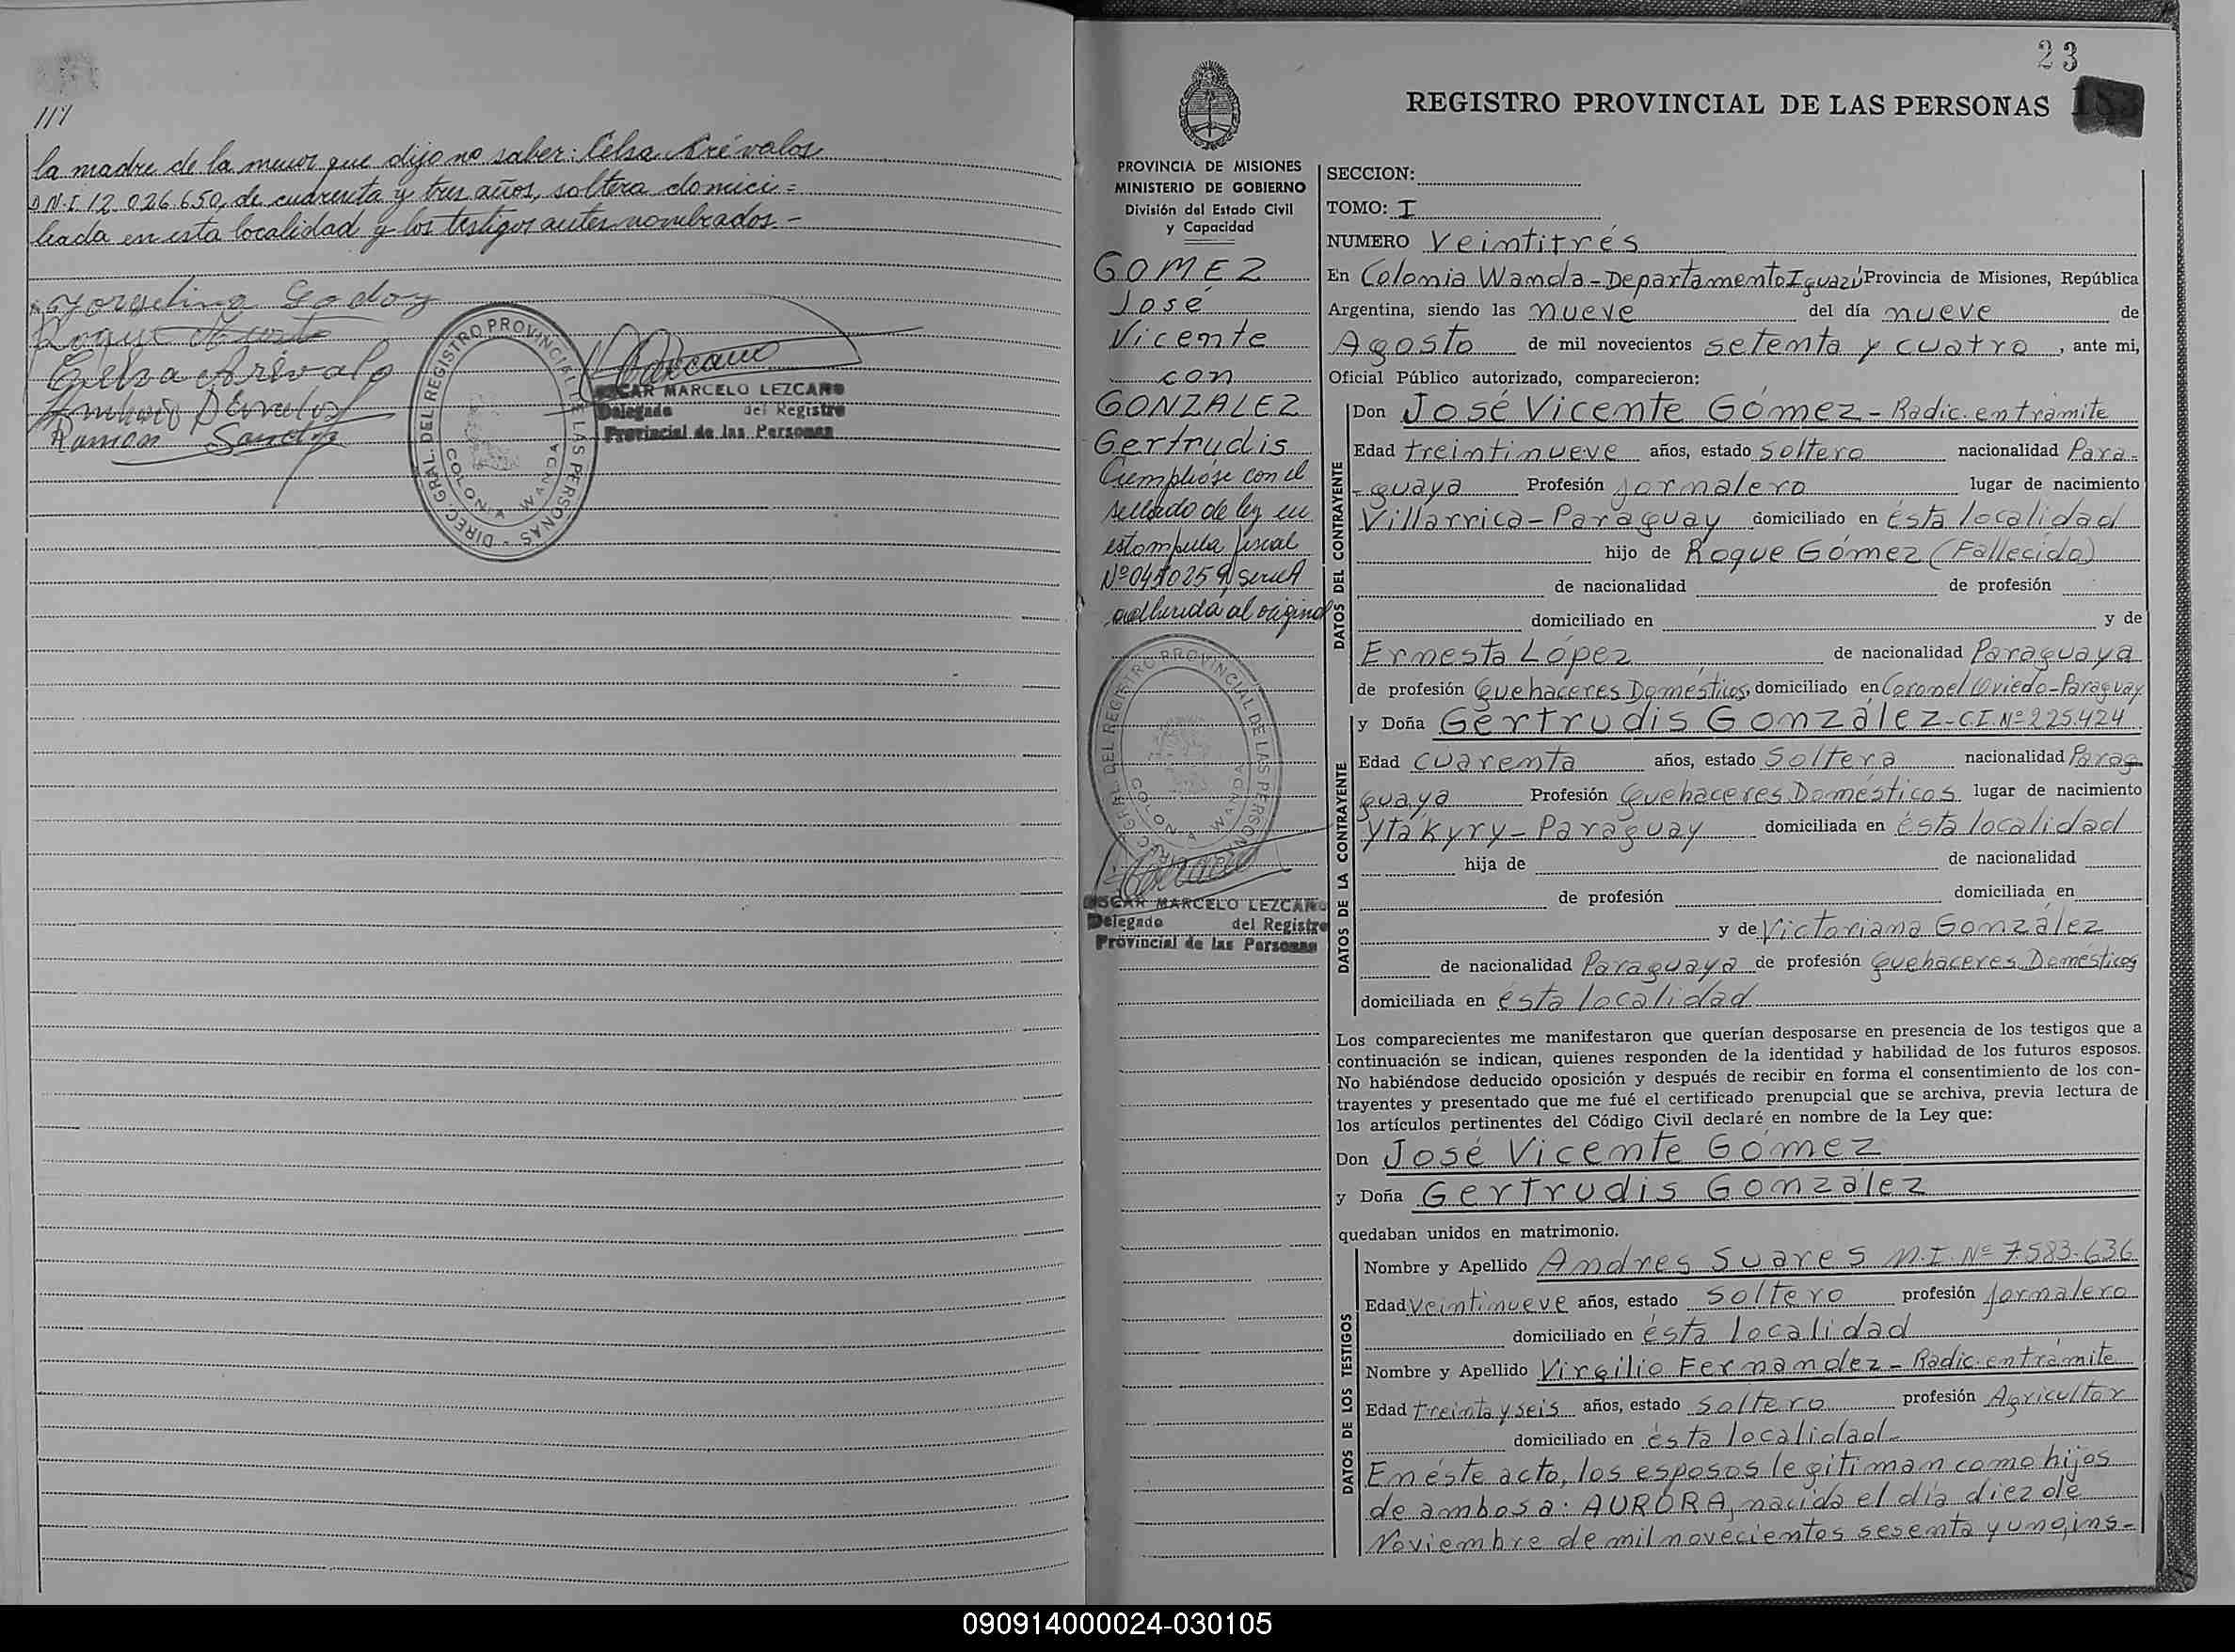 la madre de la menor que dijo no saber: Celsa Arévalos
D.N.I. 12.026.650, de cuarenta y tres años, soltera domici=
liada en esta localidad y los testigos antes nombrados.-
Jorgelina Godoy
Ramon Sanchez
DIREC. GRAL. DEL REGISTRO PROVINCIAL DE LAS PERSONAS
COLONIA WANDA
OSCAR MARCELO LEZCANO
Delegado del Registro
Provincial de las Personas
23
REGISTRO PROVINCIAL DE LAS PERSONAS
PROVINCIA DE MISIONES
MINISTERIO DE GOBIERNO
División del Estado Civil
y Capacidad
GOMEZ
José
Vicente
con
GONZALEZ
Gertrudis
Cumplióse con el
sellado de ley en
estampilla fiscal
adherida al original
DIREC. GRAL. DEL REGISTRO PROVINCIAL DE LAS PERSONAS
COLONIA WANDA
OSCAR MARCELO LEZCANO
Delegado del Registro
Provincial de las Personas
SECCION:
TOMO: I
NUMERO Veintitrés
En Colonia Wanda-Departamento Iguazú Provincia de Misiones, República
Argentina, siendo las nueve del día nueve de
Agosto de mil novecientos setenta y cuatro, ante mi,
Oficial Público autorizado, comparecieron:
DATOS DEL CONTRAYENTE
Don José Vicente Gómez-Radic. en trámite
Edad treintinueve años, estado soltero nacionalidad Para-
-guaya Profesión Jornalero lugar de nacimiento
Villarrica-Paraguay domiciliado en ésta localidad
hijo de Roque Gómez (Fallecido)
de nacionalidad de profesión
domiciliado en y de
Ernesta López de nacionalidad Paraguaya
de profesión Quehaceres Domésticos, domiciliado en Coronel Oviedo-Paraguay
DATOS DE LA CONTRAYENTE
y Doña Gertrudis González-C.I. Nº 225.424
Edad cuarenta años, estado Soltera nacionalidad Parag-
guaya Profesión Quehaceres Domésticos lugar de nacimiento
Ytakyry-Paraguay domiciliada en ésta localidad
hija de de nacionalidad
de profesión domiciliada en
y de Victoriana González
de nacionalidad Paraguaya de profesión Quehaceres Domésticos
domiciliada en ésta localidad
Los comparecientes me manifestaron que querían desposarse en presencia de los testigos que a
continuación se indican, quienes responden de la identidad y habilidad de los futuros esposos.
No habiéndose deducido oposición y después de recibir en forma el consentimiento de los con-
trayentes y presentado que me fué el certificado prenupcial que se archiva, previa lectura de
los artículos pertinentes del Código Civil declaré en nombre de la Ley que:
Don José Vicente Gómez
y Doña Gertrudis González
quedaban unidos en matrimonio.
DATOS DE LOS TESTIGOS
Nombre y Apellido Andres Suares M.I. Nº 7.583.636
Edad veintinueve años, estado soltero profesión Jornalero
domiciliado en ésta localidad
Nombre y Apellido Virgilio Fernandez-Radic. en trámite
Edad treinta y seis años, estado Soltero profesión Agricultor
domiciliado en ésta localidad-
En éste acto, los esposos legitiman como hijos
de ambos a: AURORA, nacida el día diez de
Noviembre de mil novecientos sesenta y uno, ins-
090914000024-030105